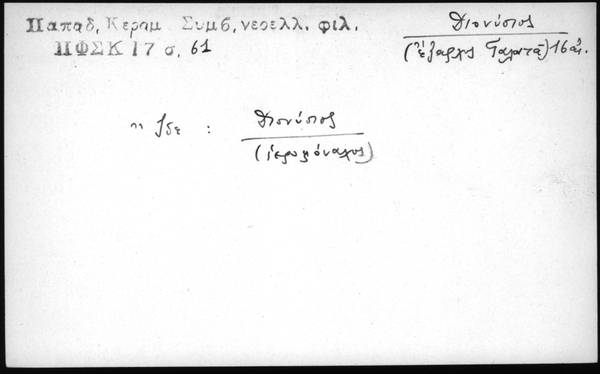 Παπαδ, Κεραμ. Συμβ, νεοελλ. φιλ.
ΠΦΣΚ 17 σ. 61
Διονύσιος
(ἔξαρχος Γαλατᾶ) 16 αἰ.
Ἴδε : Διονύσιος
(ἱερομόναχος)